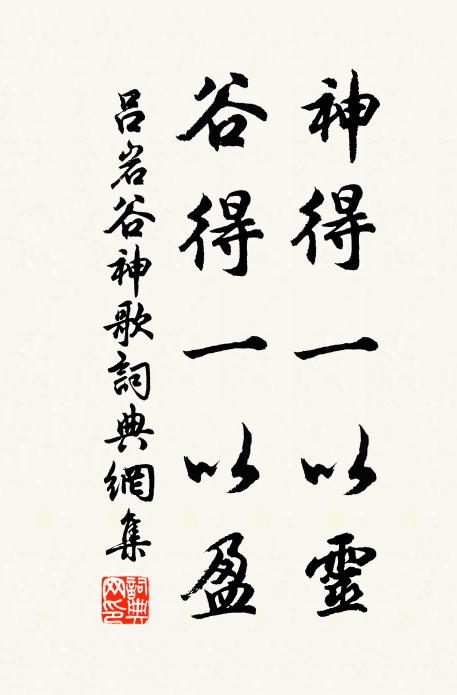 神得一以靈
谷得一以盈
呂岩谷神歌詞典網集
詞典网印